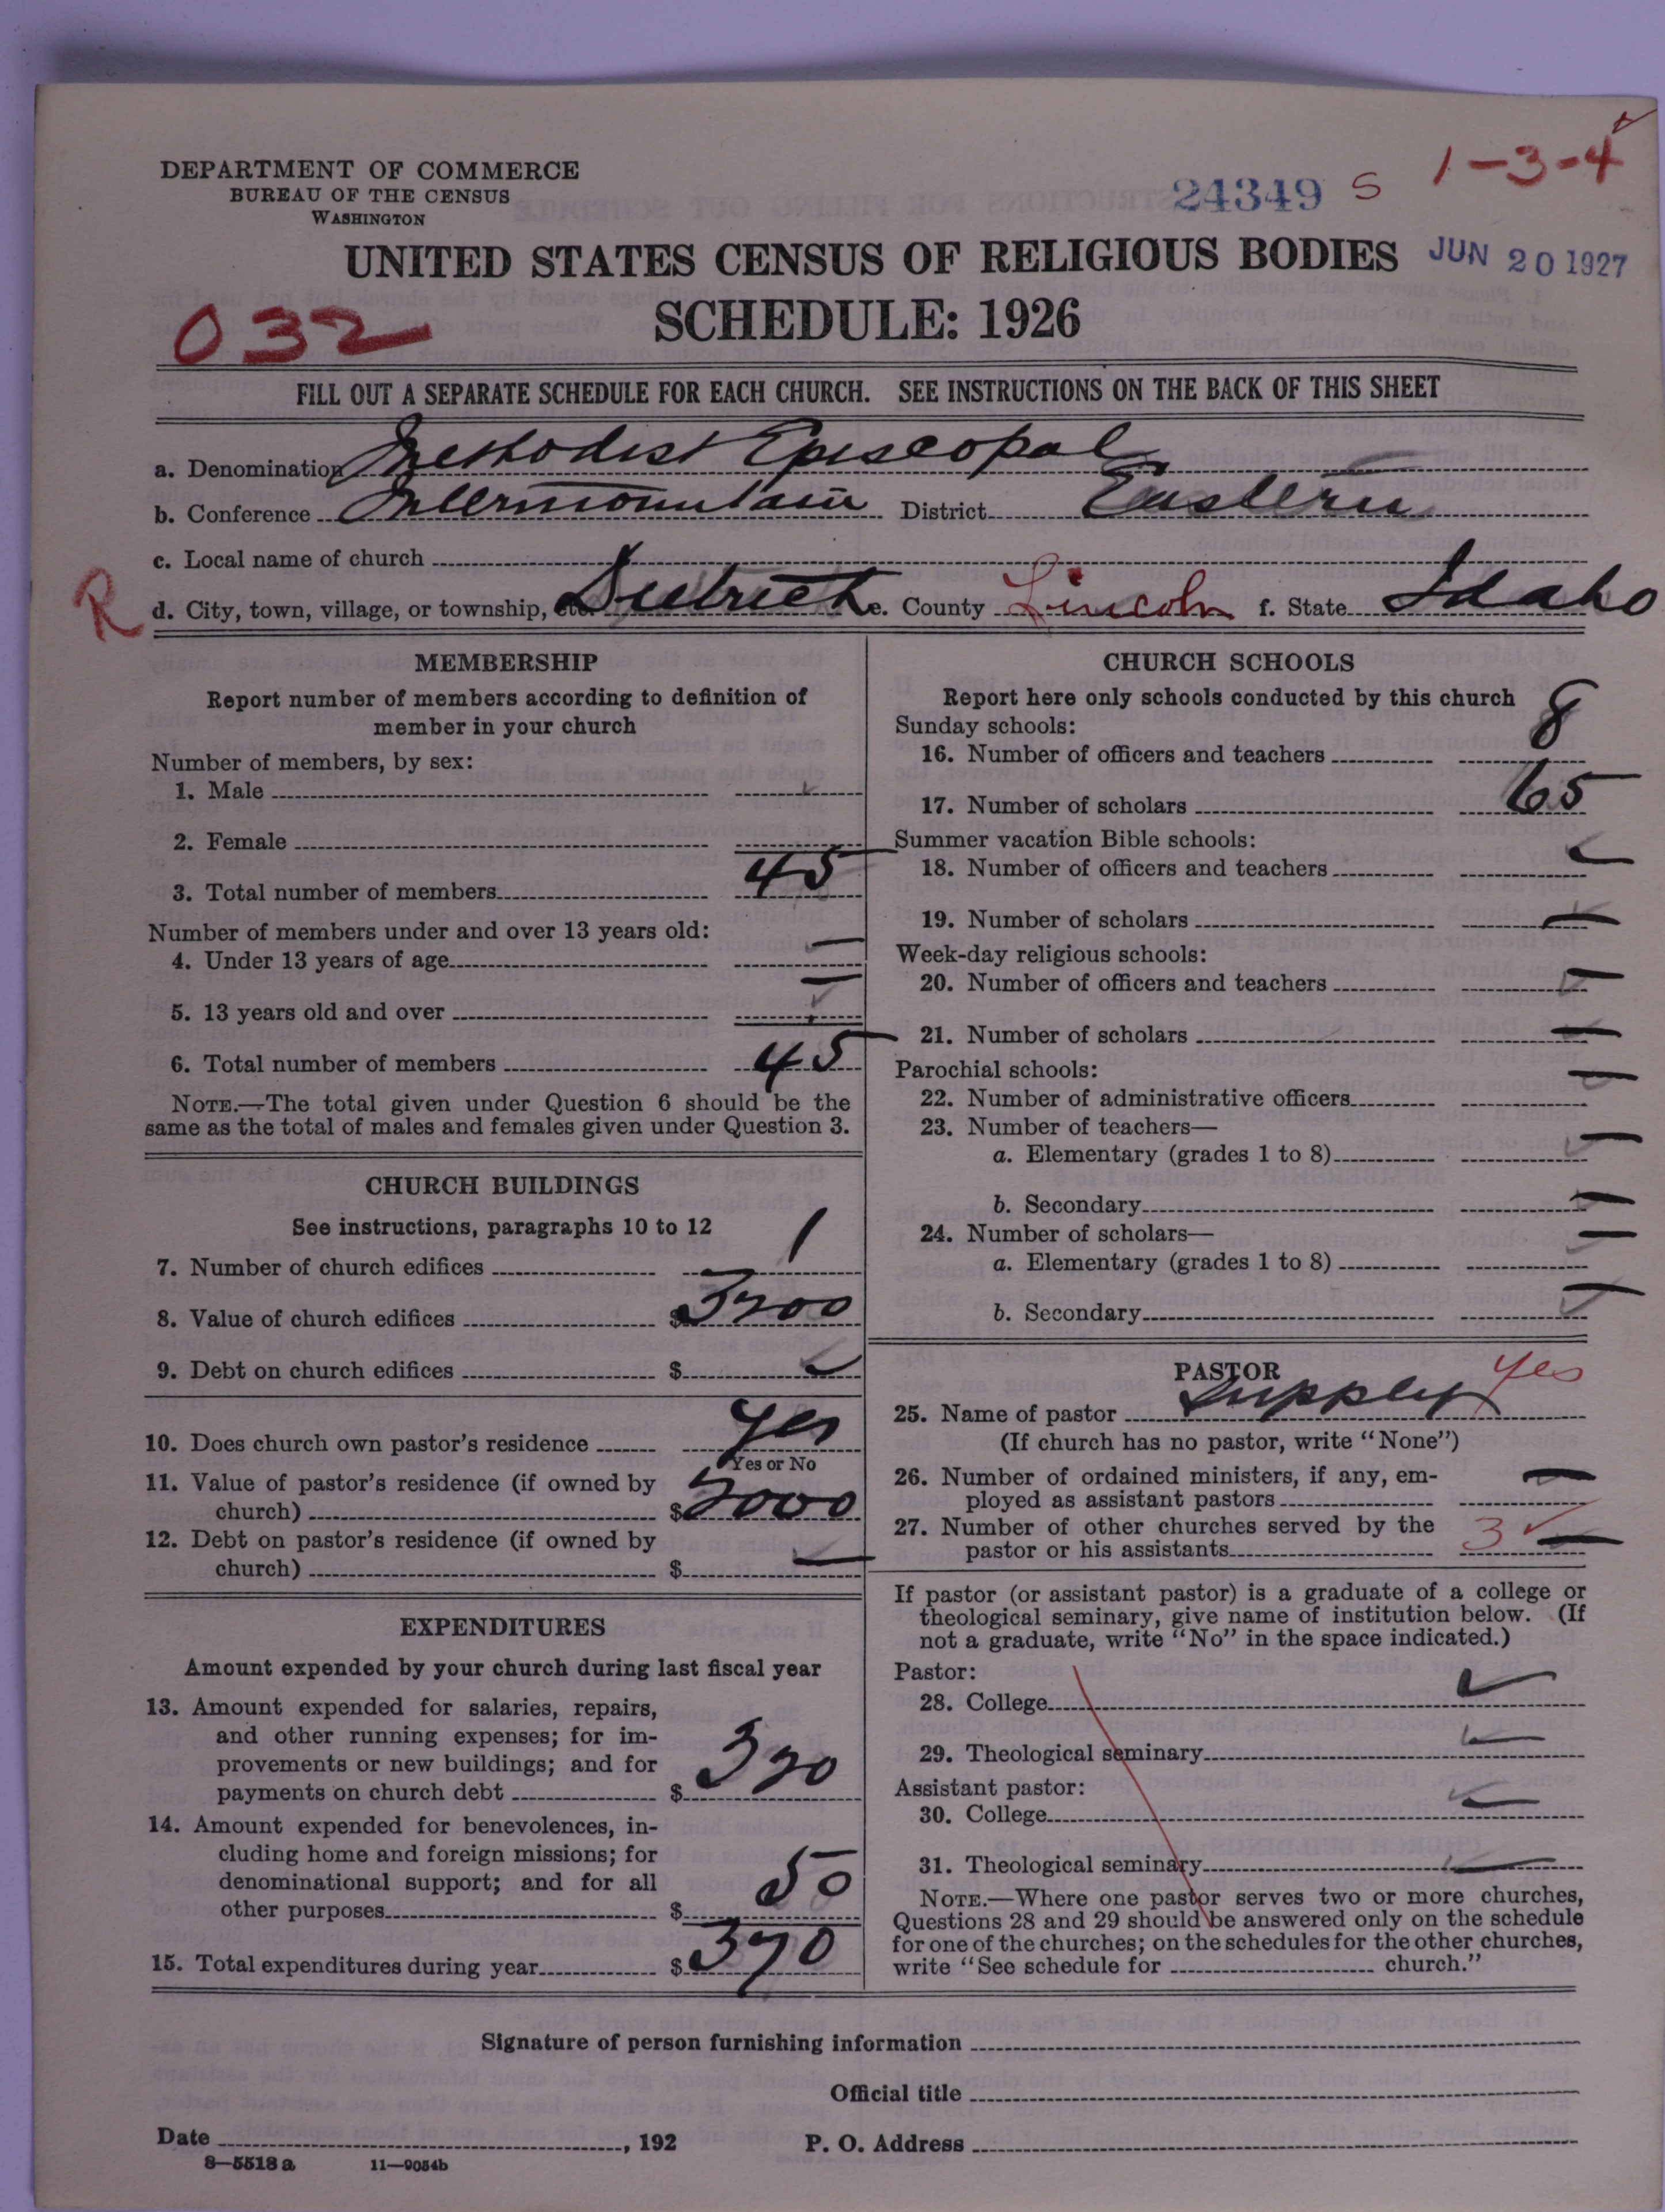 DEPARTMENT OF COMMERCE
BUREAU OF THE CENSUS
WASHINGTON
24349 S 1-3-4
UNITED STATES CENSUS OF RELIGIOUS BODIES JUN 20 1927
032 SCHEDULE: 1926
FILL OUT A SEPARATE SCHEDULE FOR EACH CHURCH. SEE INSTRUCTIONS ON THE BACK OF THIS SHEET
a. Denomination Methodist Episcopal
b. Conference Intermountain District Eastern
c. Local name of church
R d. City, town, village, or township, etc. Dietrich e. County Lincoln f. State Idaho
MEMBERSHIP
Report number of members according to definition of
member in your church
Number of members, by sex:
1. Male
2. Female
3. Total number of members 45
Number of members under and over 13 years old:
4. Under 13 years of age —
5. 13 years old and over —
6. Total number of members 45
NOTE.—The total given under Question 6 should be the
same as the total of males and females given under Question 3.
CHURCH BUILDINGS
See instructions, paragraphs 10 to 12
7. Number of church edifices 1
8. Value of church edifices $ 3200
9. Debt on church edifices $ —
10. Does church own pastor's residence yes
Yes or No
11. Value of pastor's residence (if owned by
church) $ 2000
12. Debt on pastor's residence (if owned by
church) $ —
EXPENDITURES
Amount expended by your church during last fiscal year
13. Amount expended for salaries, repairs,
and other running expenses; for im-
provements or new buildings; and for
payments on church debt $ 320
14. Amount expended for benevolences, in-
cluding home and foreign missions; for
denominational support; and for all
other purposes $ 50
15. Total expenditures during year $ 370
CHURCH SCHOOLS
Report here only schools conducted by this church
Sunday schools:
16. Number of officers and teachers 8
17. Number of scholars 65
Summer vacation Bible schools:
18. Number of officers and teachers —
19. Number of scholars —
Week-day religious schools:
20. Number of officers and teachers —
21. Number of scholars —
Parochial schools:
22. Number of administrative officers —
23. Number of teachers—
a. Elementary (grades 1 to 8) —
b. Secondary —
24. Number of scholars—
a. Elementary (grades 1 to 8) —
b. Secondary —
PASTOR
25. Name of pastor Supply yes
(If church has no pastor, write "None")
26. Number of ordained ministers, if any, em-
ployed as assistant pastors —
27. Number of other churches served by the
pastor or his assistants 3 —
If pastor (or assistant pastor) is a graduate of a college or
theological seminary, give name of institution below. (If
not a graduate, write "No" in the space indicated.)
Pastor:
28. College —
29. Theological seminary —
Assistant pastor:
30. College —
31. Theological seminary —
NOTE.—Where one pastor serves two or more churches,
Questions 28 and 29 should be answered only on the schedule
for one of the churches; on the schedules for the other churches,
write "See schedule for church."
Signature of person furnishing information
Official title
Date , 192 P. O. Address
8—5518 a 11—9054b